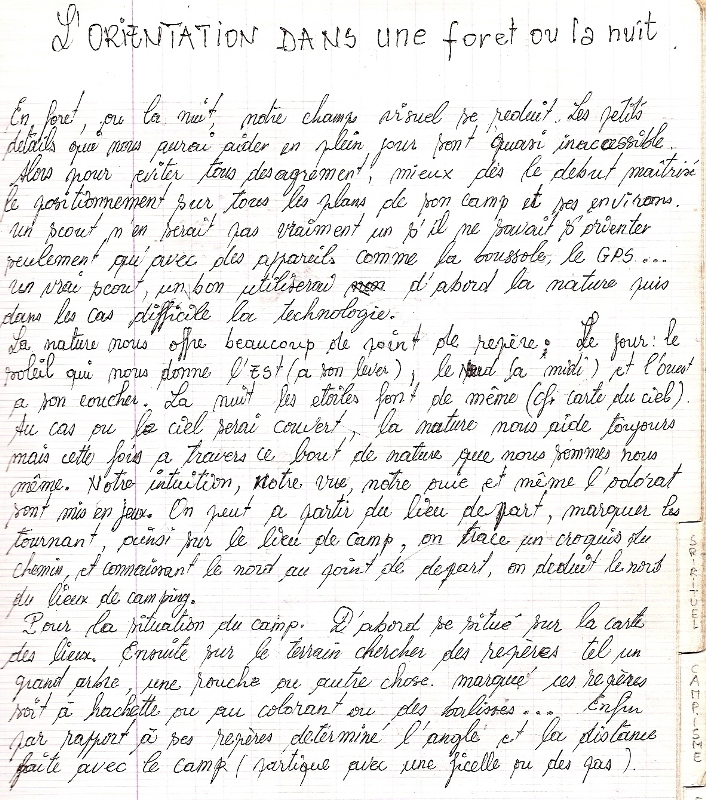 L'ORIENTATION DANS une foret ou la nuit.
En foret, ou la nuit, notre champs visuel se reduit. Les petits
details qui nous aurai aider en plein jour sont quasi inaccessible.
Alors pour eviter tous desagrement, mieux dès le debut maitrisé
le positionnement sur tous les plans de son camp et ses environs.
un scout n'en serait pas vraiment un s'il ne savait s'orienter
seulement qu'avec des appareils comme la boussole, le GPS...
un vrai scout, un bon utiliserai d'abord la nature puis
dans les cas difficile la technologie.
La nature nous offre beaucoup de point de repère: Le jour: le
soleil qui nous donne l'EST (a son lever), le (a midi) et l'ouest
a son coucher. La nuit les etoiles font de même (cf. carte du ciel).
Au cas ou le ciel serai couvert, la nature nous aide toujours
mais cette fois a travers ce bout de nature que nous sommes nous
même. Notre intuition, Notre vue, notre ouie et même l'odorat
sont mis en jeux. On peut a partir du lieu depart, marquer les
tournant, ainsi sur le lieu de camp, on trace un croquis du
chemin, et connaissant le nord au point de depart, on deduit le nord
du lieux de camping.
Pour la situation du camp. D'abord se situé sur la carte
des lieux. Ensuite sur le terrain chercher des repères tel un
grand arbre, une souche ou autre chose. marqué ces repères
soit à hachette ou au colorant ou des balises... Enfin
par rapport à ses repères determiné l'angle et la distance
faite avec le camp (partique avec une ficelle ou des pas).
SPIRITUEL
CAMPISME